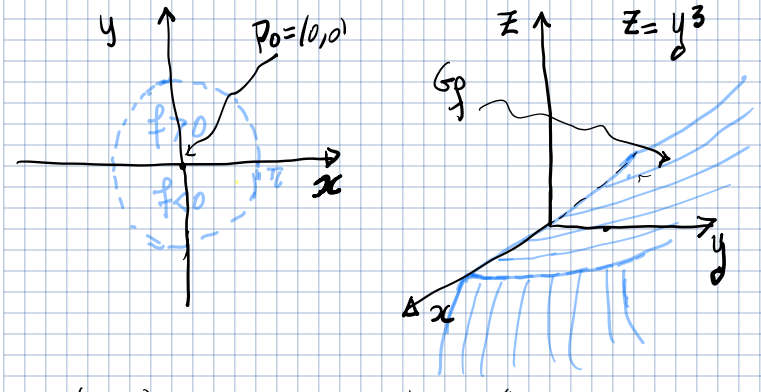 y
P₀=(0,0)
f>0
f<0
x
z
z=y³
Gf
y
x